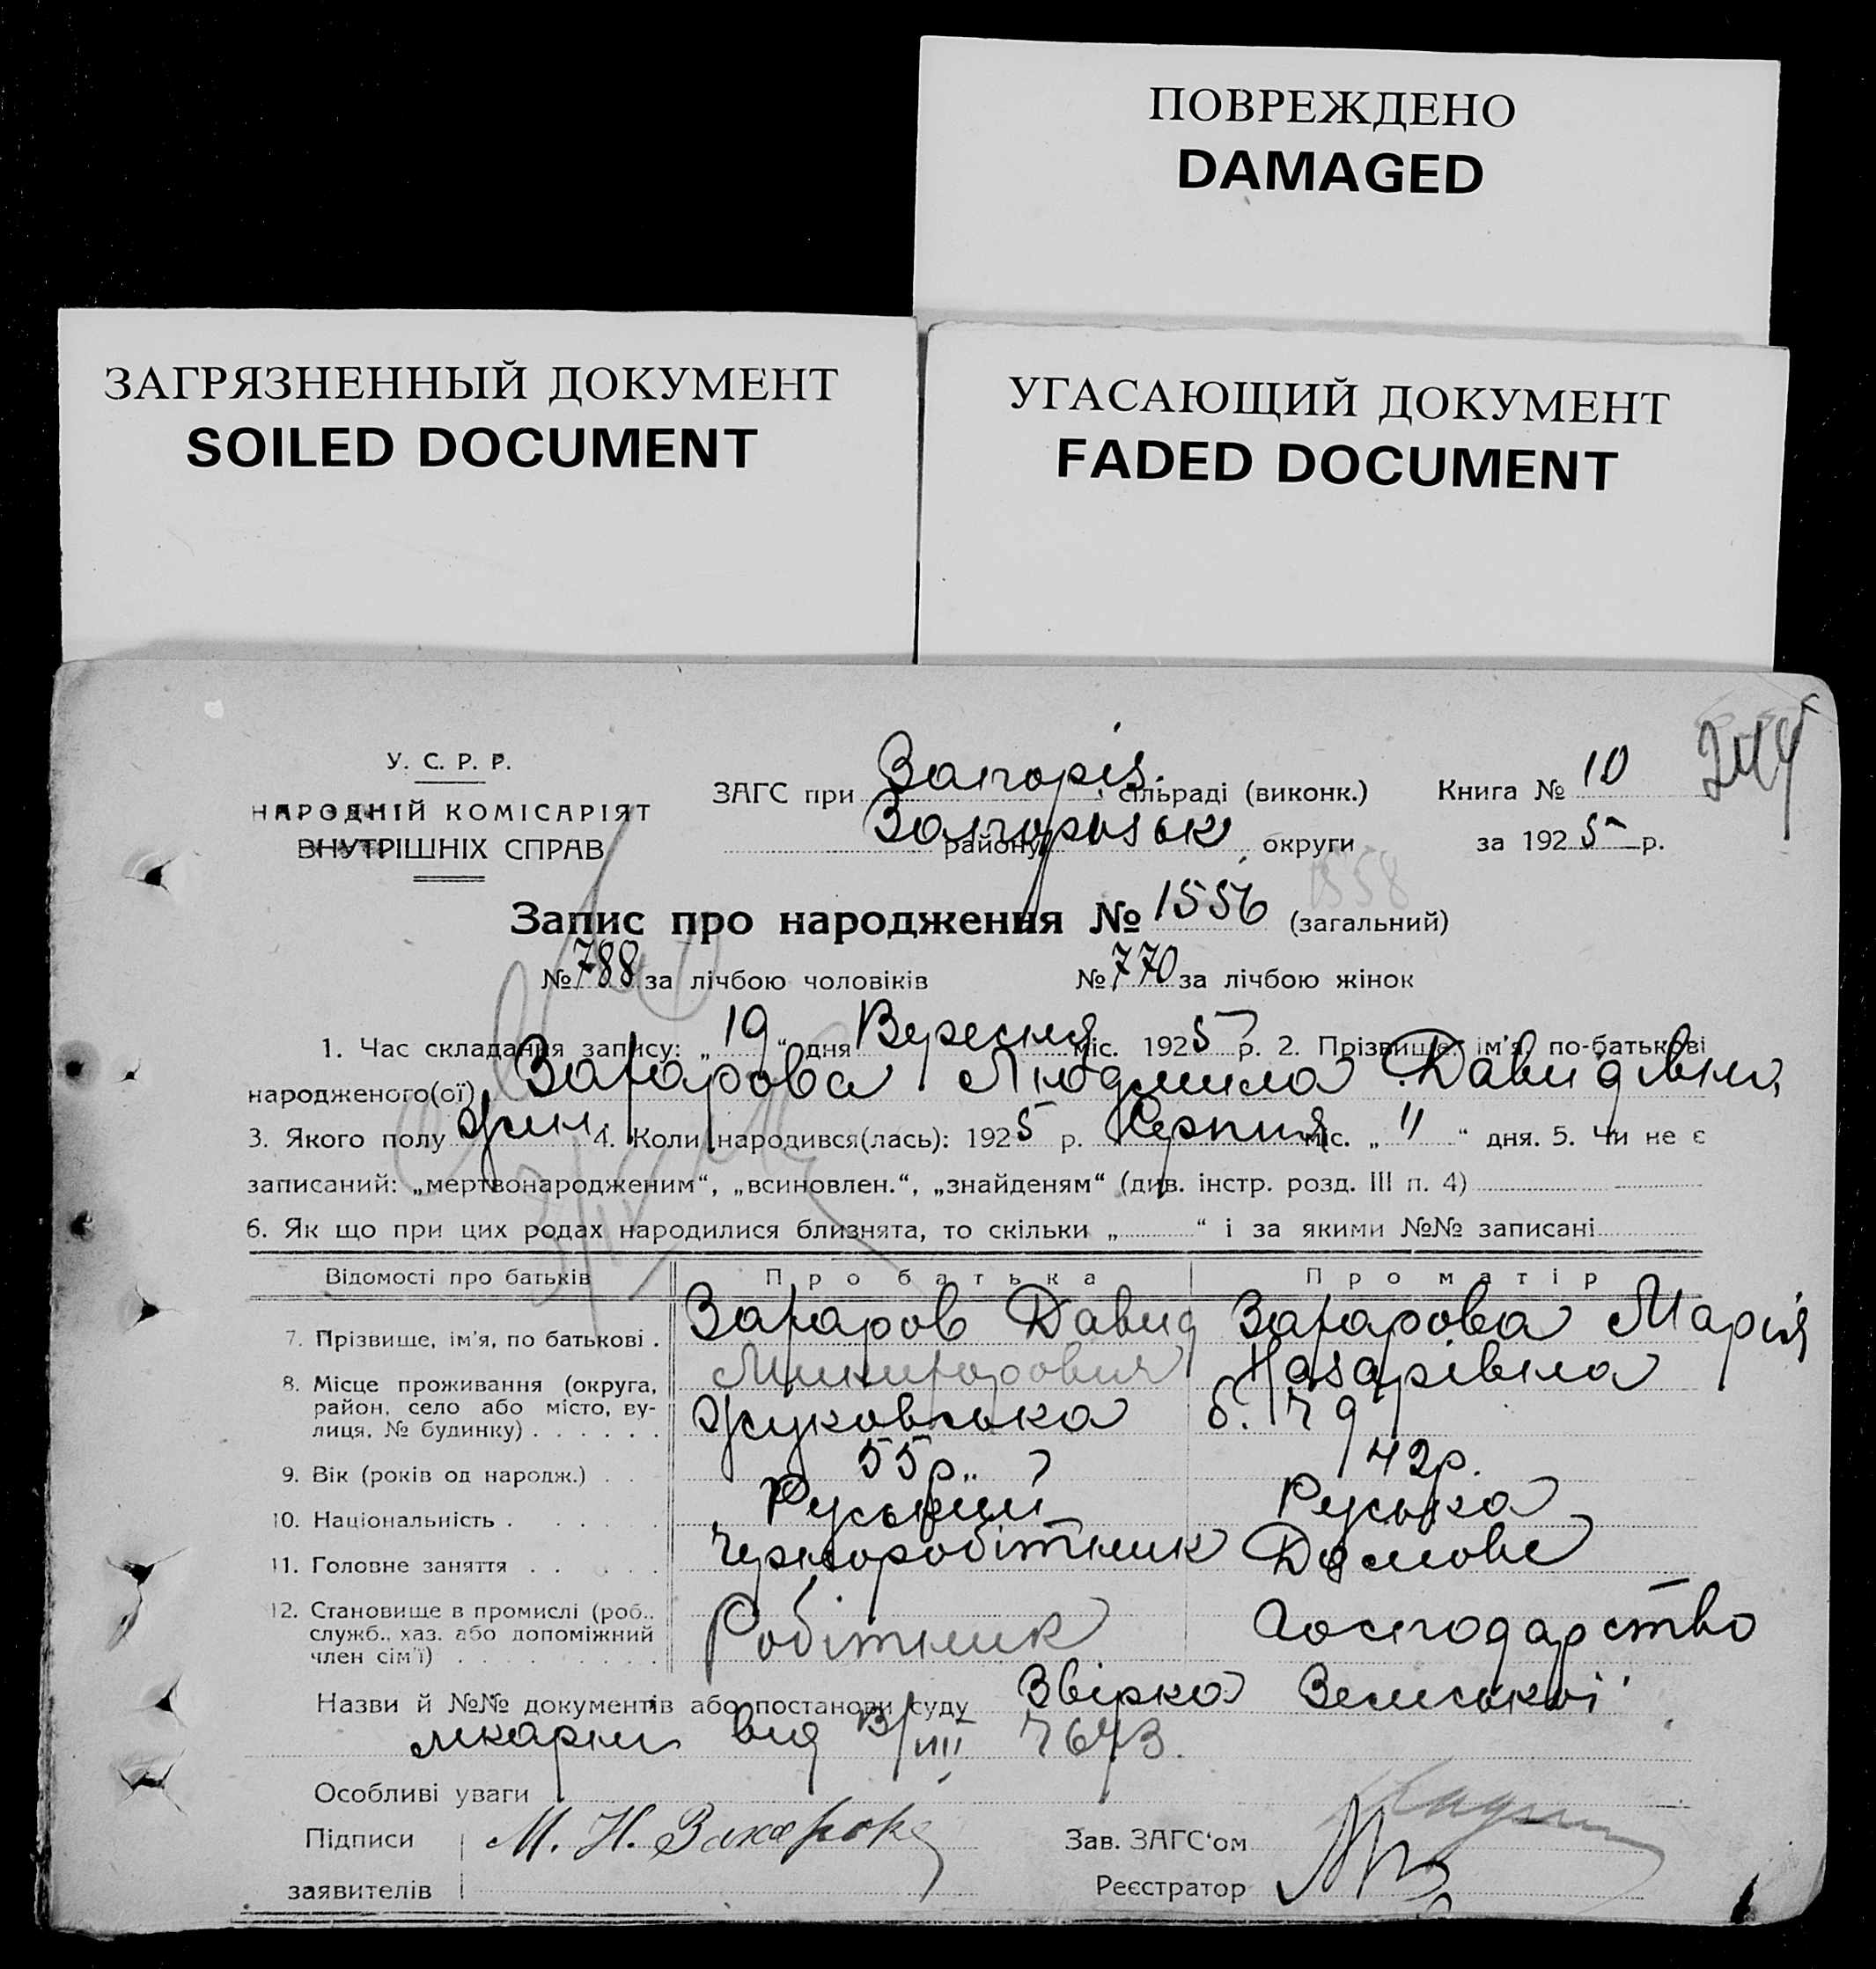 ПОВРЕЖДЕНО
DAMAGED
ЗАГРЯЗНЕННЫЙ ДОКУМЕНТ
SOILED DOCUMENT
УГАСАЮЩИЙ ДОКУМЕНТ
FADED DOCUMENT
У. С. Р. Р.
НАРОДНІЙ КОМІСАРІЯТ
ВНУТРІШНІХ СПРАВ
ЗАГС при Запоріз. сільраді (виконк.)
району Запорізьк округи
Книга № 10
за 1925 р.
Запис про народження № 1556 (загальний)
1558
№ 788 за лічбою чоловіків № 770 за лічбою жінок
1. Час складання запису: „19“ дня Вересня міс. 1925 р. 2. Прізвище, ім'я, по-батькові
народженого(ої) Захарова Людмила Давидівна
3. Якого полу жін. 4. Коли народився(лась): 1925 р. Серпня міс. „11“ дня. 5. Чи не є
записаний: „мертвонародженим“, „всиновлен.“, „знайденям“ (див. інстр. розд. III п. 4)
6. Як що при цих родах народилися близнята, то скільки „ “ і за якими №№ записані
Відомості про батьків Про батька Про матір
7. Прізвище, ім'я, по батькові . Захаров Давид Захарова Марія
Назарівна
8. Місце проживання (округа, район, село або місто, вулиця, № будинку) . . . . . . Жуковська б. 79
9. Вік (років од народж.) . . 55р. 42р.
10. Національність . . . . . Руський Руська
11. Головне заняття . . . . . Чорноробітник Домове
12. Становище в промислі (роб., служб., хаз. або допоміжний член сім'ї) . . . . . . . . . Робітник Господарство
Назви й №№ документів або постанови суду Звірка Земської
лікарні від 13/VIII 7643.
Особливі уваги
Підписи М. Н. Захарова Зав. ЗАГС'ом
заявителів Реєстратор